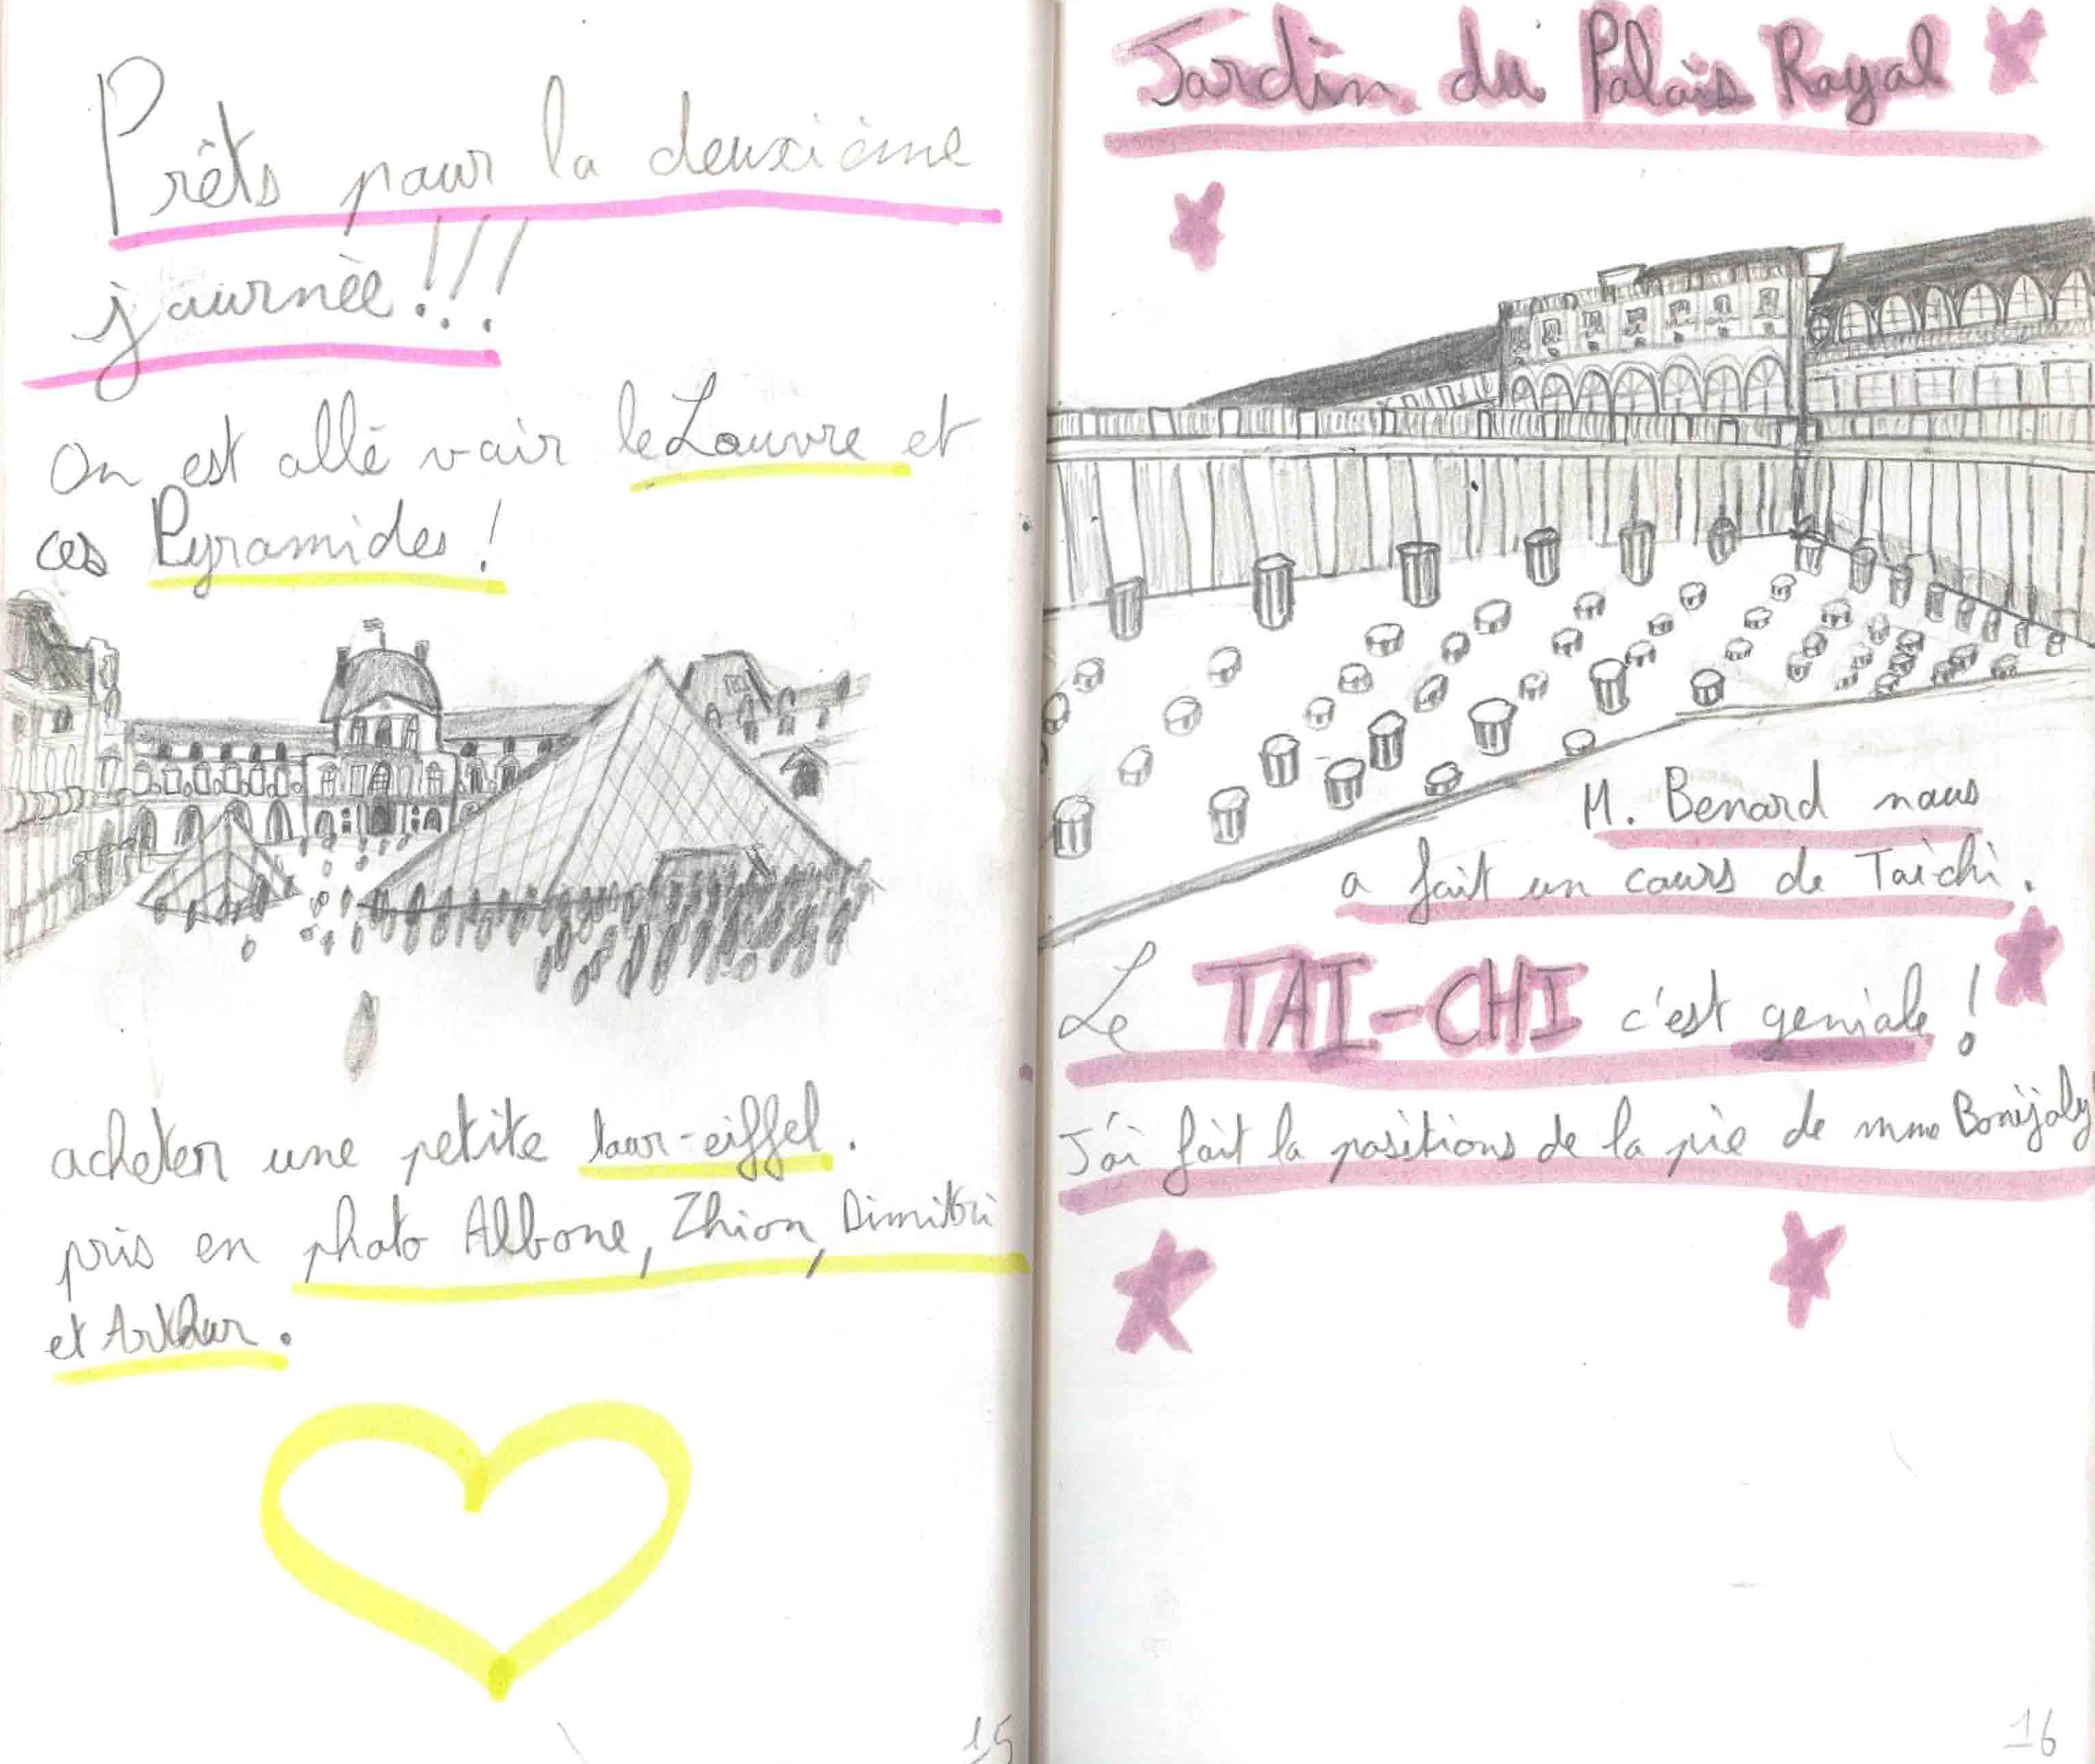 Prêts pour la deuxième
journée!!!
On est allé voir le Louvre et
ces Pyramides!
acheter une petite tour-eiffel.
pris en photo Albone, Zhion, Dimitri
et Arthur.
15
Jardin du Palais Royal
M. Benard nous
a fait un cours de Taichi.
Le TAI-CHI c'est geniale!
J'ai fait la positions de la pie de mme
16